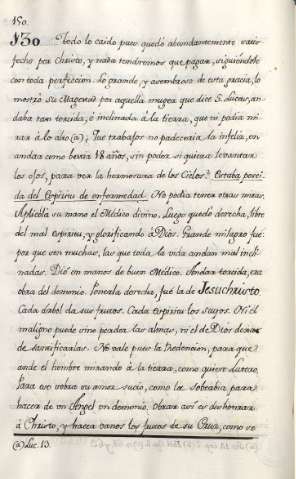 150.
N30 Todo lo caido pues quedó abundantemente satis
fecho por Christo, y nada tendremos que pagar, siguiéndole
con toda perfeccion. Lo grande, y asombroso de esta gracia, lo
mostró su Magestad por aquella muger que dice S. Lucas, an
daba tan torcida, é inclinada á la tierra, que no podia mi
rar á lo alto (a). Que trabajos no padeceria la infeliz, en
andar como bestia 18 años, sin poder si quiera levantar
los ojos, para ver la hermosura de los Cielos? Estaba posei
da del Espiritu de enfermedad. No podia tener otras miras.
Aplicóla su mano el Médico divino. Luego quedó derecha, libre
del mal espiritu, y glorificando á Dios. Grande milagro fue:
por que ven muchas, las que toda la vida andan mal incli
nadas. Dió en manos de buen Médico. Andar torcida, era
obra del demonio. Ponerla derecha, fué la de Jesuchristo
Cada dabel da sus frutos. Cada espiritu los suyos. Ni el
maligno puede sino perder las almas, ni el de Dios dexar
de santificarlas. No vale pues la Redencion, para que
ande el hombre mirando á la tierra, como quiere
Para eso sobra su amor sucio, como la soberbia para
hacer de un Angel un demonio. Obrar asi es deshonrar
á Christo, y hacer vanos los frutos de su Cruz, como se
(a) Luc. 13.